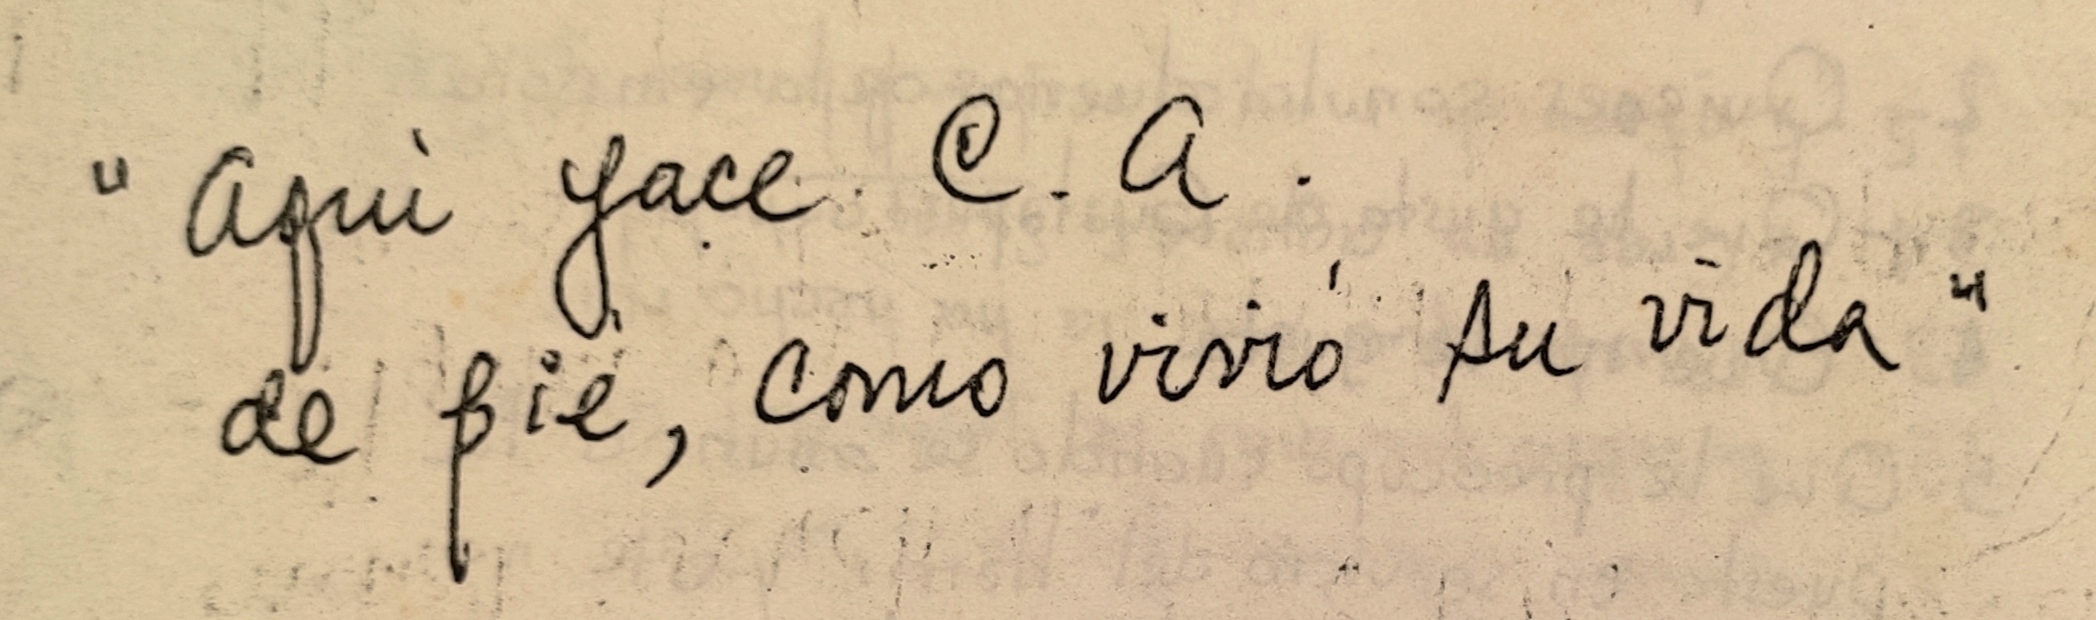 "Aquì yace C. A.
de pié, como vivió su vida"